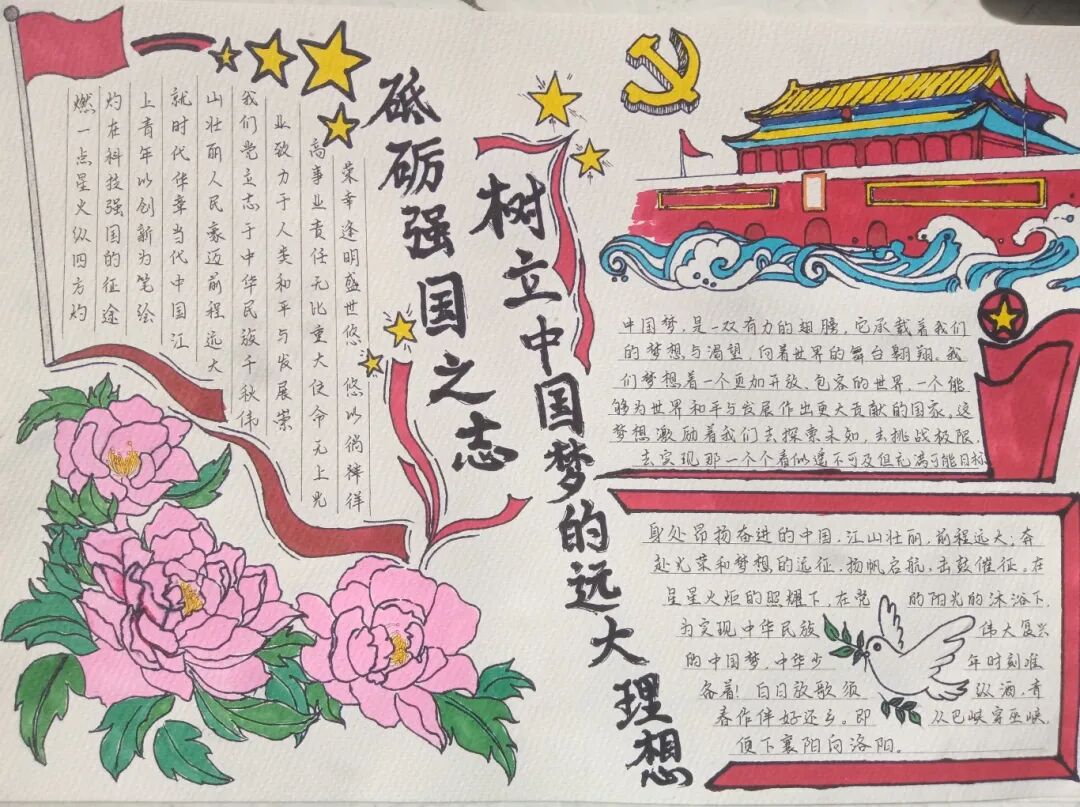 砥砺强国之志
树立中国梦的远大理想
燃一点星火纵四方灼
灼在科技强国的征途
上青年以创新为笔绘
就时代华章当代中国江
山壮丽人民豪迈前程远大
我们党立志于中华民族千秋伟
业致力于人类和平与发展崇
高事业责任无比重大使命无上光
荣幸逢明盛世悠悠以徜徉
中国梦,是一双有力的翅膀,它承载着我们
的梦想与渴望,向着世界的舞台翱翔。我
们梦想着一个更加开放、包容的世界,一个能
够为世界和平与发展作出更大贡献的国家。这
梦想激励着我们去探索未知,去挑战极限,
去实现那一个个看似遥不可及但充满可能目标
身处昂扬奋进的中国,江山壮丽,前程远大;奔
赴光荣和梦想的远征,扬帆启航,击鼓催征。在
星星火炬的照耀下,在党的阳光的沐浴下,
为实现中华民族伟大复兴
的中国梦,中华少年时刻准
备着!白日放歌须纵酒,青
春作伴好还乡。即从巴峡穿巫峡,
便下襄阳向洛阳。